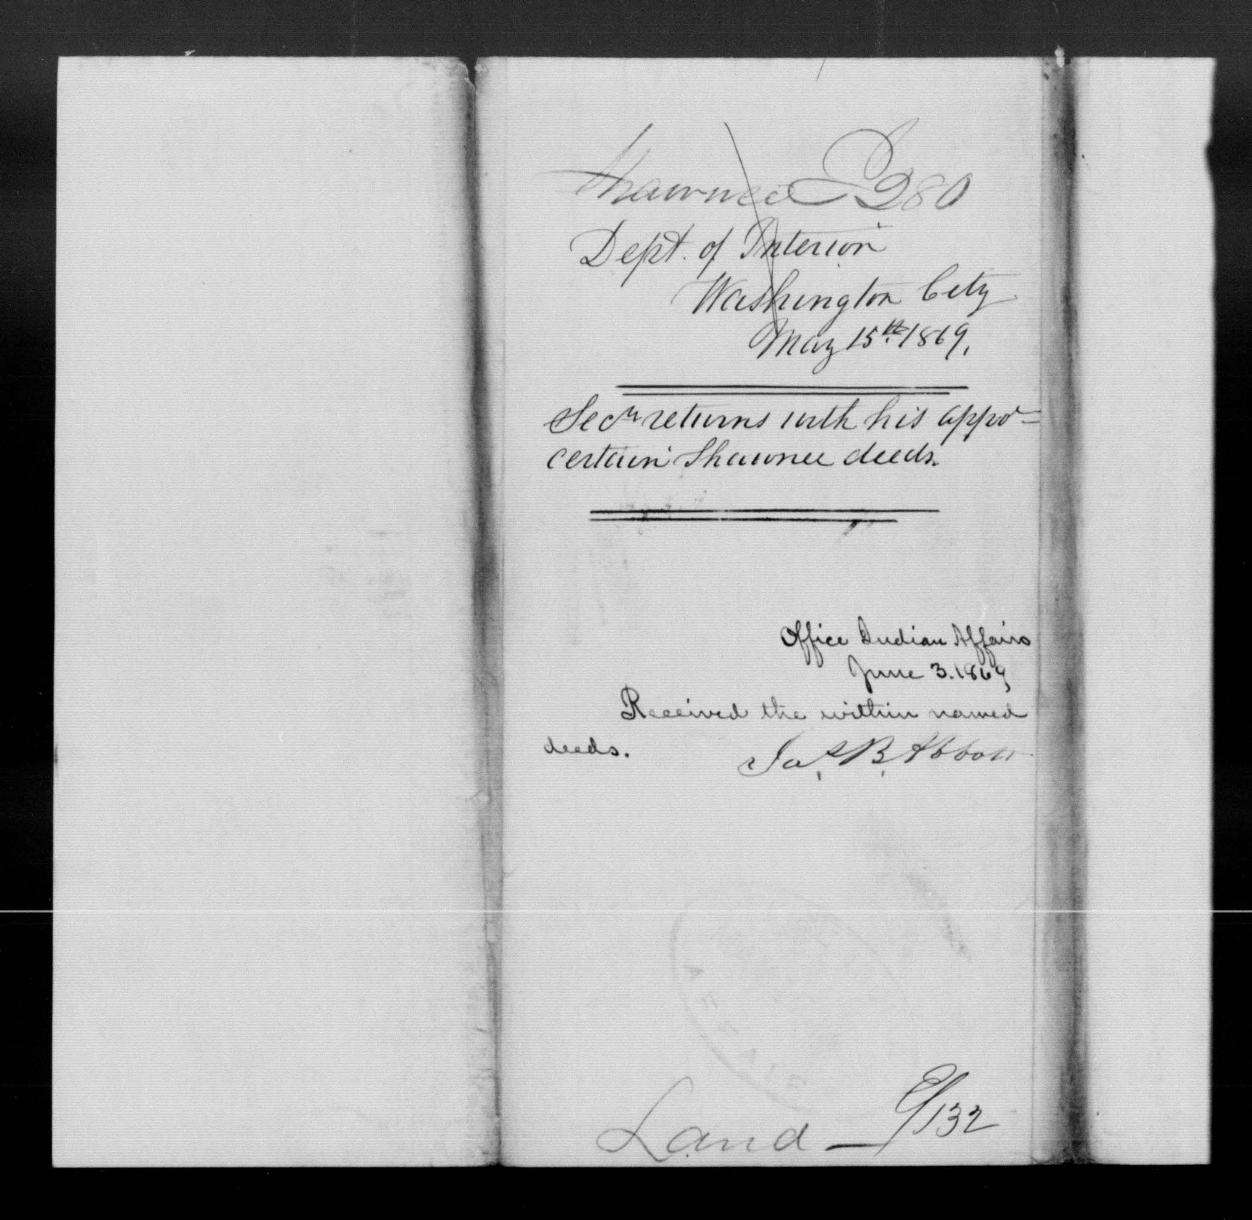 Shawnee I 280
Dept. of Interior
Washington City
May 15th 1869.
Secy returns with his appvl
certain Shawnee deeds.
Office Indian Affairs
June 3. 1869
Received the within named
deeds.
Jas. B. Abbott
Land — 9/132